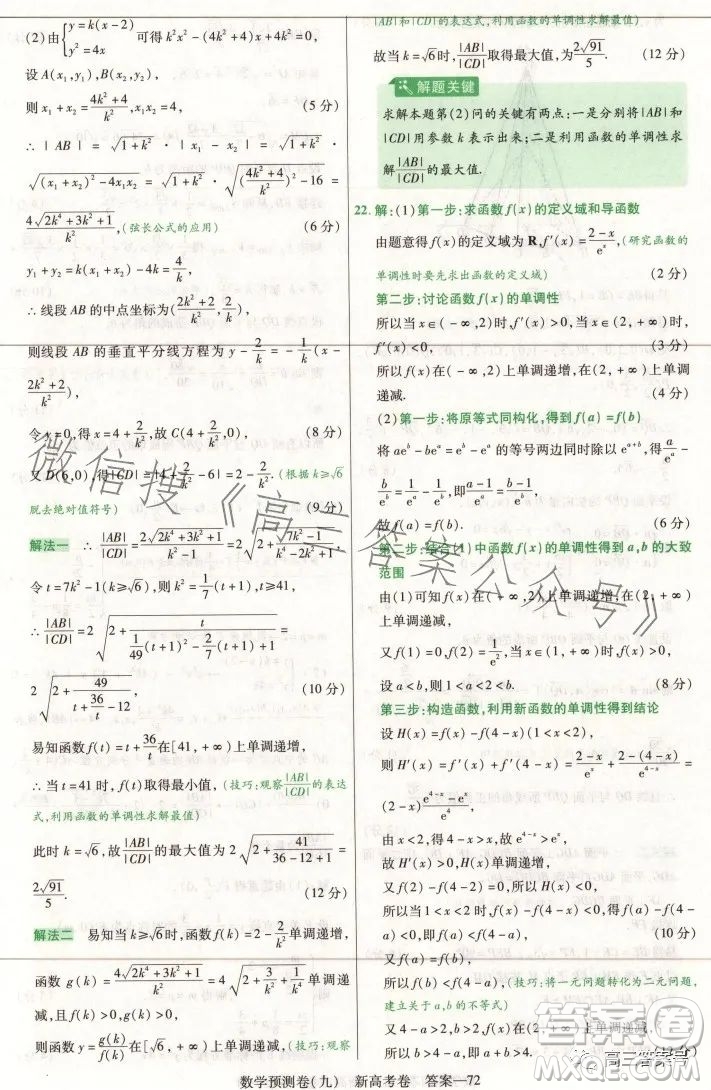 (2)由{y=k(x-2) y²=4x 可得k²x²-(4k²+4)x+4k²=0,
设A(x₁,y₁),B(x₂,y₂),
则x₁+x₂=(4k²+4)/k²,x₁x₂=4, (5分)
∴|AB|=√(1+k²)·
√((x₁+x₂)²-4x₁x₂)=√(1+k²)·√(((4k²+4)/k²)²-16)=
4√(2k⁴+3k²+1)/k²,(弦长公式的应用) (6分)
y₁+y₂=k(x₁+x₂)-4k=4/k,
∴线段AB的中点坐标为((2k²+2)/k²,2/k),
则线段AB的垂直平分线方程为y-2/k=-1/k(x-
(2k²+2)/k²),
令y=0,得x=4+2/k²,故C(4+2/k²,0), (8分)
又D(6,0),得|CD|=|4+2/k²-6|=2-2/k².(根据k≥√6
脱去绝对值符号) (9分)
解法一 ∴|AB|/|CD|=2√(2k⁴+3k²+1)/(k²-1)=2√(2+(7k²-1)/(k⁴-2k²+1)),
令t=7k²-1(k≥√6),则k²=1/7(t+1),t≥41,
∴|AB|/|CD|=2√(2+t/(1/49(t+1)²-2/7(t+1)+1))=
2√(2+49/(t+36/t-12)), (10分)
易知函数f(t)=t+36/t在[41,+∞)上单调递增,
∴当t=41时,f(t)取得最小值,(技巧:观察|AB|/|CD|的表达
式,利用函数的单调性求解最值)
此时k=√6,故|AB|/|CD|的最大值为2√(2+41/(36-12+1))=
2√91/5. (12分)
解法二 易知当k≥√6时,函数f(k)=2-2/k²单调递增,
函数g(k)=4√(2k⁴+3k²+1)/k²=4√(2+3/k²+1/k⁴)单调递
减,且f(k)>0,g(k)>0,
则函数y=g(k)/f(k)在[√6,+∞)上单调递减,(技巧:观察
|AB|和|CD|的表达式,利用函数的单调性求解最值)
故当k=√6时,|AB|/|CD|取得最大值,为2√91/5. (12分)
解题关键
求解本题第(2)问的关键有两点:一是分别将|AB|和
|CD|用参数k表示出来;二是利用函数的单调性求
解|AB|/|CD|的最大值.
22.解:(1)第一步:求函数f(x)的定义域和导函数
由题意得f(x)的定义域为R,f′(x)=(2-x)/eˣ,(研究函数的
单调性时要先求出函数的定义域) (2分)
第二步:讨论函数f(x)的单调性
所以当x∈(-∞,2)时,f′(x)>0,当x∈(2,+∞)时,
f′(x)<0, (3分)
所以f(x)在(-∞,2)上单调递增,在(2,+∞)上单调
递减. (4分)
(2)第一步:将原等式同构化,得到f(a)=f(b)
将aeᵇ-beᵃ=eᵇ-eᵃ的等号两边同时除以eᵃ⁺ᵇ,得a/eᵃ-
b/eᵇ=1/eᵃ-1/eᵇ,即(a-1)/eᵃ=(b-1)/eᵇ,
故f(a)=f(b). (6分)
第二步:综合(1)中函数f(x)的单调性得到a,b的大致
范围
由(1)可知f(x)在(-∞,2)上单调递增,在(2,+∞)上
单调递减,
又f(1)=0,f(2)=1/e²,当x→+∞时,f(x)→0,
设a<b,则1<a<2<b. (8分)
第三步:构造函数,利用新函数的单调性得到结论
设H(x)=f(x)-f(4-x)(1<x<2),
则H′(x)=f′(x)+f′(4-x)=(2-x)/eˣ+(2-(4-x))/e⁴⁻ˣ=
(2-x)(e⁴⁻ˣ-eˣ)/e⁴,
由x<2,得4-x>2,故e⁴⁻ˣ>eˣ,
故H′(x)>0,H(x)单调递增,
又f(2)-f(4-2)=0,所以H(x)<0,
所以当1<x<2时,f(x)<f(4-x), (10分)
所以f(a)<f(4-a),
又f(a)=f(b),
所以f(b)<f(4-a),(技巧:将一元问题转化为二元问题,
建立关于a,b的不等式)
又4-a>2,b>2,f(x)在(2,+∞)上单调递减,
数学预测卷(九) 新高考卷 答案—72
微信搜《高三答案公众号》
答案圈
高三答案号